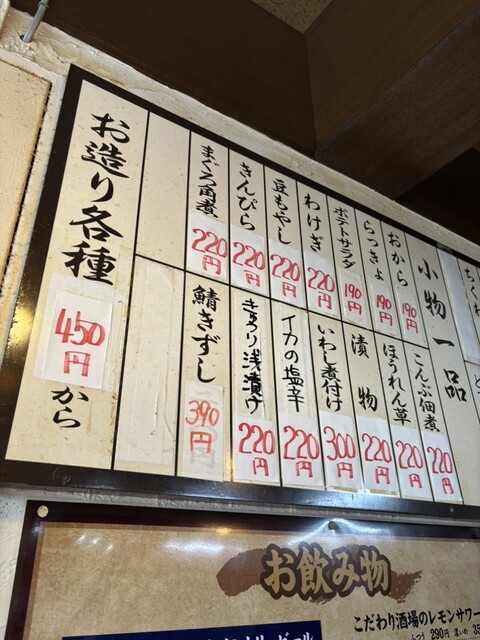 小物一品
おから 190円
らっきょ 190円
ポテトサラダ 190円
わけぎ 220円
豆もやし 220円
きんぴら 220円
まぐろ角煮 220円
こんぶ佃煮 220円
ほうれん草 220円
漬物 220円
いわし煮付け 300円
イカの塩辛 220円
きゅうり浅漬け 220円
鯖きずし 390円
お造り各種 450円から
お飲み物
こだわり酒場のレモンサワー
290円